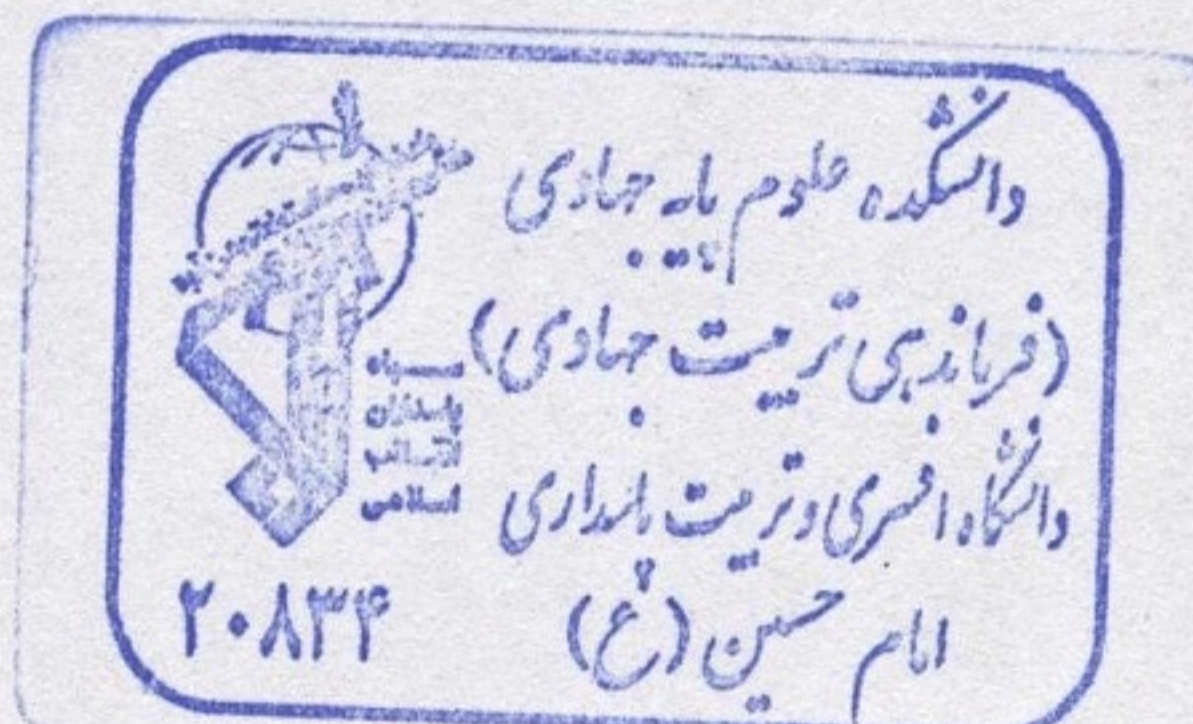 دانشکده علوم پایه جهادی
(فرماندهی تربیت جهادی)
دانشگاه افسری و تربیت پاسداری
امام حسین (ع)
سپاه
پاسداران
انقلاب
اسلامی
۲۰۸۳۴